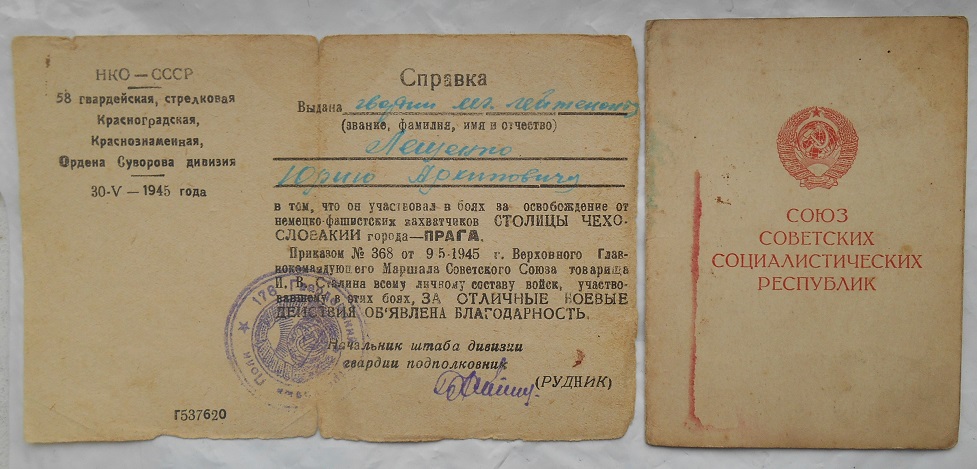 НКО — СССР
58 гвардейская, стрелковая
Красноградская,
Краснознаменная,
Ордена Суворова дивизия
30-V — 1945 года
Г537620
Справка
Выдана гвардии мл. лейтенанту
(звание, фамилия, имя и отчество)
Лещенко
Юрию Архиповичу
в том, что он участвовал в боях за освобождение от
немецко-фашистских захватчиков СТОЛИЦЫ ЧЕХО-
СЛОВАКИИ города—ПРАГА.
Приказом № 368 от 9 5-1945 г. Верховного Глав-
нокомандующего Маршала Советского Союза товарища
И. В. Сталина всему личному составу войск, участво-
вавшему в этих боях, ЗА ОТЛИЧНЫЕ БОЕВЫЕ
ДЕЙСТВИЯ ОБ'ЯВЛЕНА БЛАГОДАРНОСТЬ.
Начальник штаба дивизии
гвардии подполковник
(РУДНИК)
СОЮЗ
СОВЕТСКИХ
СОЦИАЛИСТИЧЕСКИХ
РЕСПУБЛИК